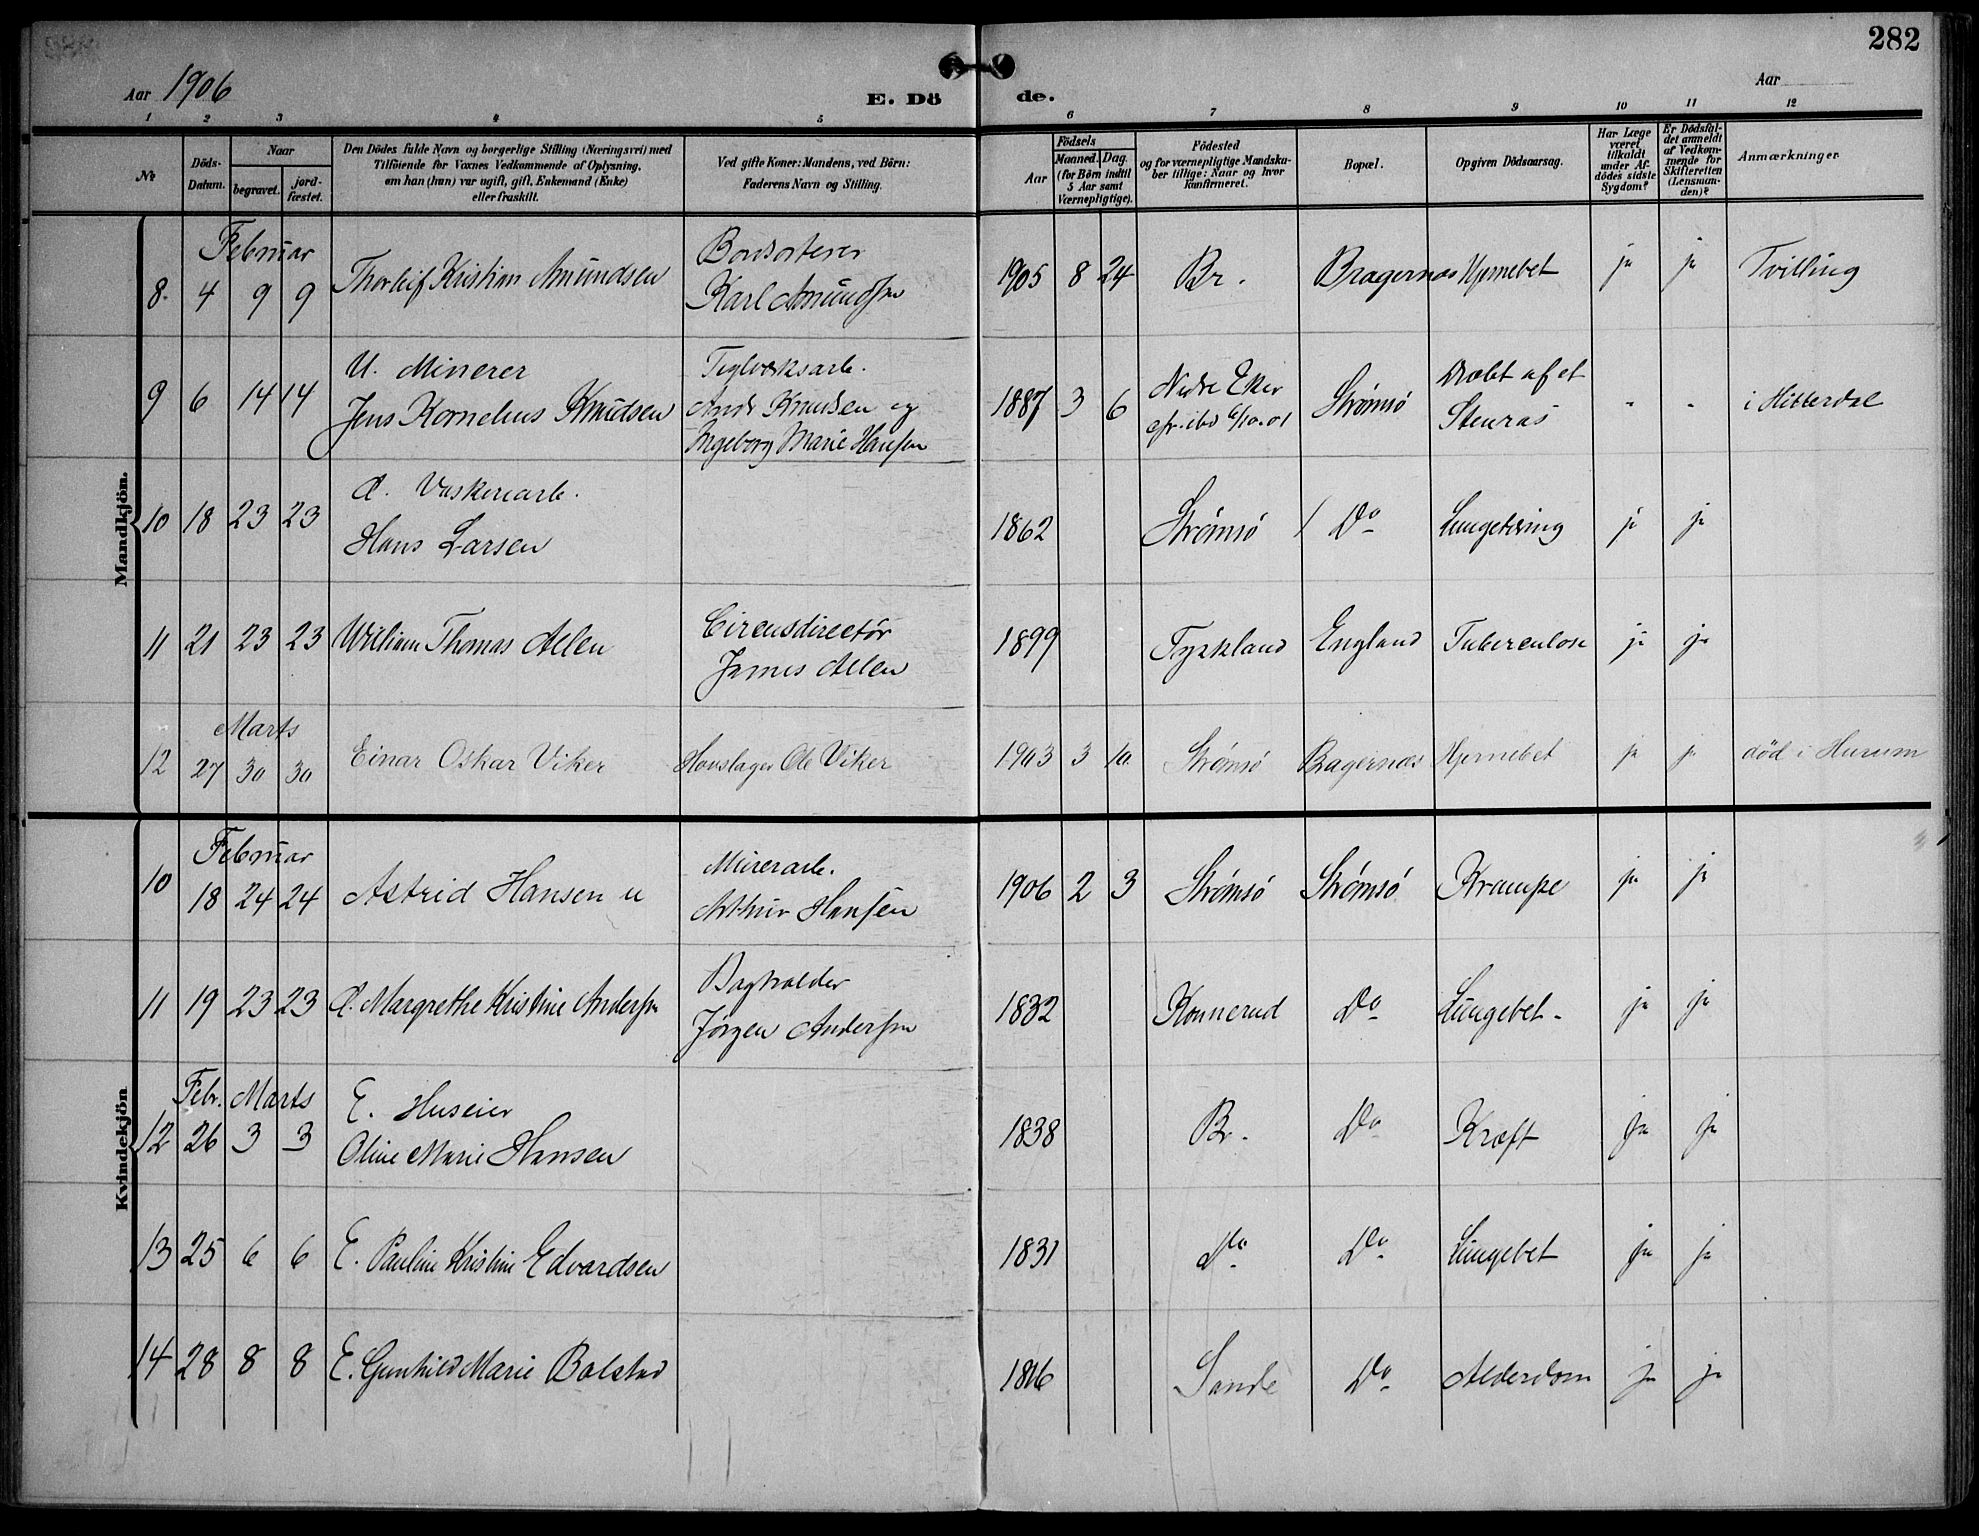 282
Aar 1906
E. Dö de.
Aar
1 2 3 4 5 6 7 8 9 10 11 12
№
Döds-
Datum.
Naar
begravet.
jord-
fæstet.
Den Dödes fulde Navn og borgerlige Stilling (Næringsvei) med
Tilföiende for Voxnes Vedkommende af Oplysning,
om han (hun) var ugift, gift, Enkemand (Enke)
eller fraskilt.
Ved gifte Koner: Mandens, ved Börn:
Faderens Navn og Stilling.
Födsels
Aar
Maaned. Dag.
(for Börn indtil
5 Aar samt
Værnepligtige).
Födested
og for værnepligtige Mandska-
ber tillige: Naar og hvor
konfirmeret.
Bopæl.
Opgiven Dödsaarsag.
Har Læge
været
tilkaldt
under Af-
dödes sidste
Sygdom?
Er Dödsfal-
det anmeldt
af Vedkom-
mende for
Skifteretten
(Lensman-
den)?
Anmærkninger
Mandkjön.
Februar
8. 4 9 9 Thorleif Kristian Amundsen
Bordsorterer
Karl Amundsen
1905 8 24 Br. Bragernæs Hjernebet ja ja Tvilling
9 6 14 14
U. Minerer
Jens Kornelius Knudsen
Teglværksarb.
Andr Knudsen og
Ingeborg Marie Hansen
1887 3 6
Nedre Eker
cfr. ibd 6/10.01
Strømsö
Dræbt af et
Stenras
" " i Hitterdal
10 18 23 23
G. Vaskeriarb.
Hans Larsen
1862 Strømsö / Do Lungetæring ja ja
11 21 23 23 William Thomas Allen
Circusdirectør
James Allen
1899 Tyskland England Tuberculose ja ja
Marts
12 27 30 30 Einar Oskar Viker Hovslager Ole Viker
1903 3 10. Strømsö Bragernæs Hjernebet ja ja död i Hurum
Kvindekjön
Februar
10 18 24 24 Astrid Hansen u
Murerarb.
Arthur Hansen
1906 2 3 Strømsö Strømsö Krampe ja ja
11 19 23 23 G. Margrethe Kristine Andersen
Bogholder
Jörgen Andersen
1832 Konnerud Do Lungebet. ja ja
Febr. Marts
12 26 3 3
E. Huseier
Oline Marie Hansen
1838 Br. Do Kræft ja ja
13 25 6 6 E. Pauline Kristine Edvardsen
1831 Do Do Lungebet ja ja
14 28 8 8 E. Gunhild Marie Bolstad
1816 Sande Do Alderdom ja ja